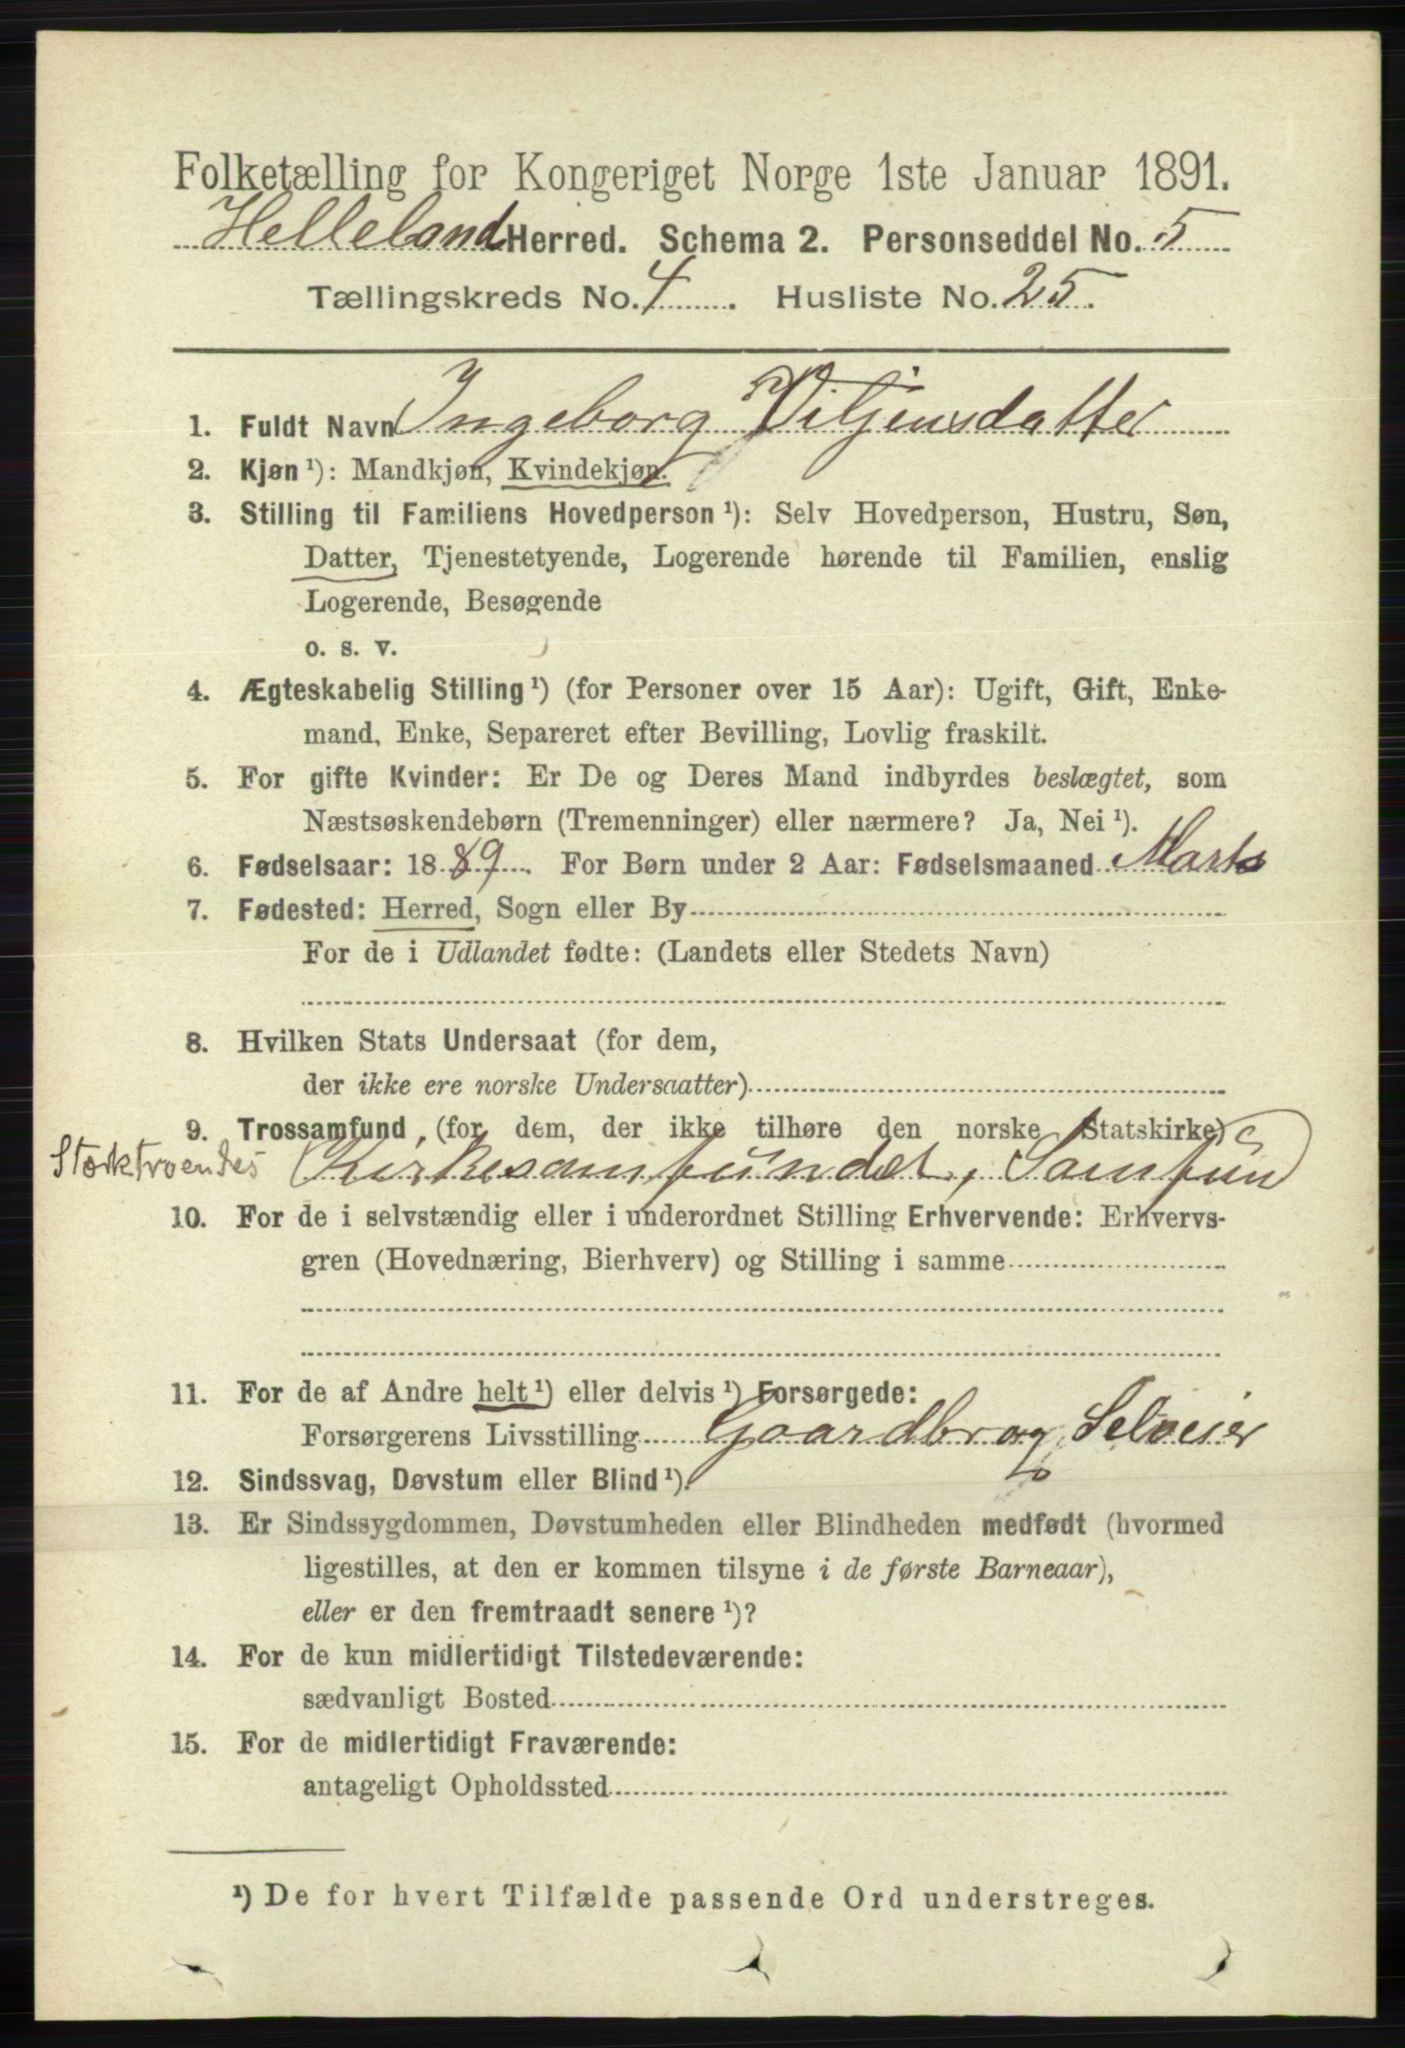 Folketælling for Kongeriget Norge 1ste Januar 1891.
Helleland Herred. Schema 2. Personseddel No. 5
Tællingskreds No. 4. Husliste No. 25.
1. Fuldt Navn Ingeborg Viljensdatter
2. Kjøn ¹): Mandkjøn, Kvindekjøn.
3. Stilling til Familiens Hovedperson ¹): Selv Hovedperson, Hustru, Søn,
Datter, Tjenestetyende, Logerende hørende til Familien, enslig
Logerende, Besøgende
o. s. v.
4. Ægteskabelig Stilling ¹) (for Personer over 15 Aar): Ugift, Gift, Enke-
mand, Enke, Separeret efter Bevilling, Lovlig fraskilt.
5. For gifte Kvinder: Er De og Deres Mand indbyrdes beslægtet, som
Næstsøskendebørn (Tremenninger) eller nærmere? Ja, Nei ¹).
6. Fødselsaar: 1889. For Børn under 2 Aar: Fødselsmaaned Marts
7. Fødested: Herred, Sogn eller By
For de i Udlandet fødte: (Landets eller Stedets Navn)
8. Hvilken Stats Undersaat (for dem,
der ikke ere norske Undersaatter)
9. Trossamfund, (for dem, der ikke tilhøre den norske Statskirke)
Stærktroendes Kirkesamfundet, Samfund
10. For de i selvstændig eller i underordnet Stilling Erhvervende: Erhvervs-
gren (Hovednæring, Bierhverv) og Stilling i samme
11. For de af Andre helt ¹) eller delvis ¹) Forsørgede:
Forsørgerens Livsstilling Gaardbrug Selveier
12. Sindssvag, Døvstum eller Blind ¹).
13. Er Sindssygdommen, Døvstumheden eller Blindheden medfødt (hvormed
ligestilles, at den er kommen tilsyne i de første Barneaar),
eller er den fremtraadt senere ¹)?
14. For de kun midlertidigt Tilstedeværende:
sædvanligt Bosted
15. For de midlertidigt Fraværende:
antageligt Opholdssted
¹) De for hvert Tilfælde passende Ord understreges.